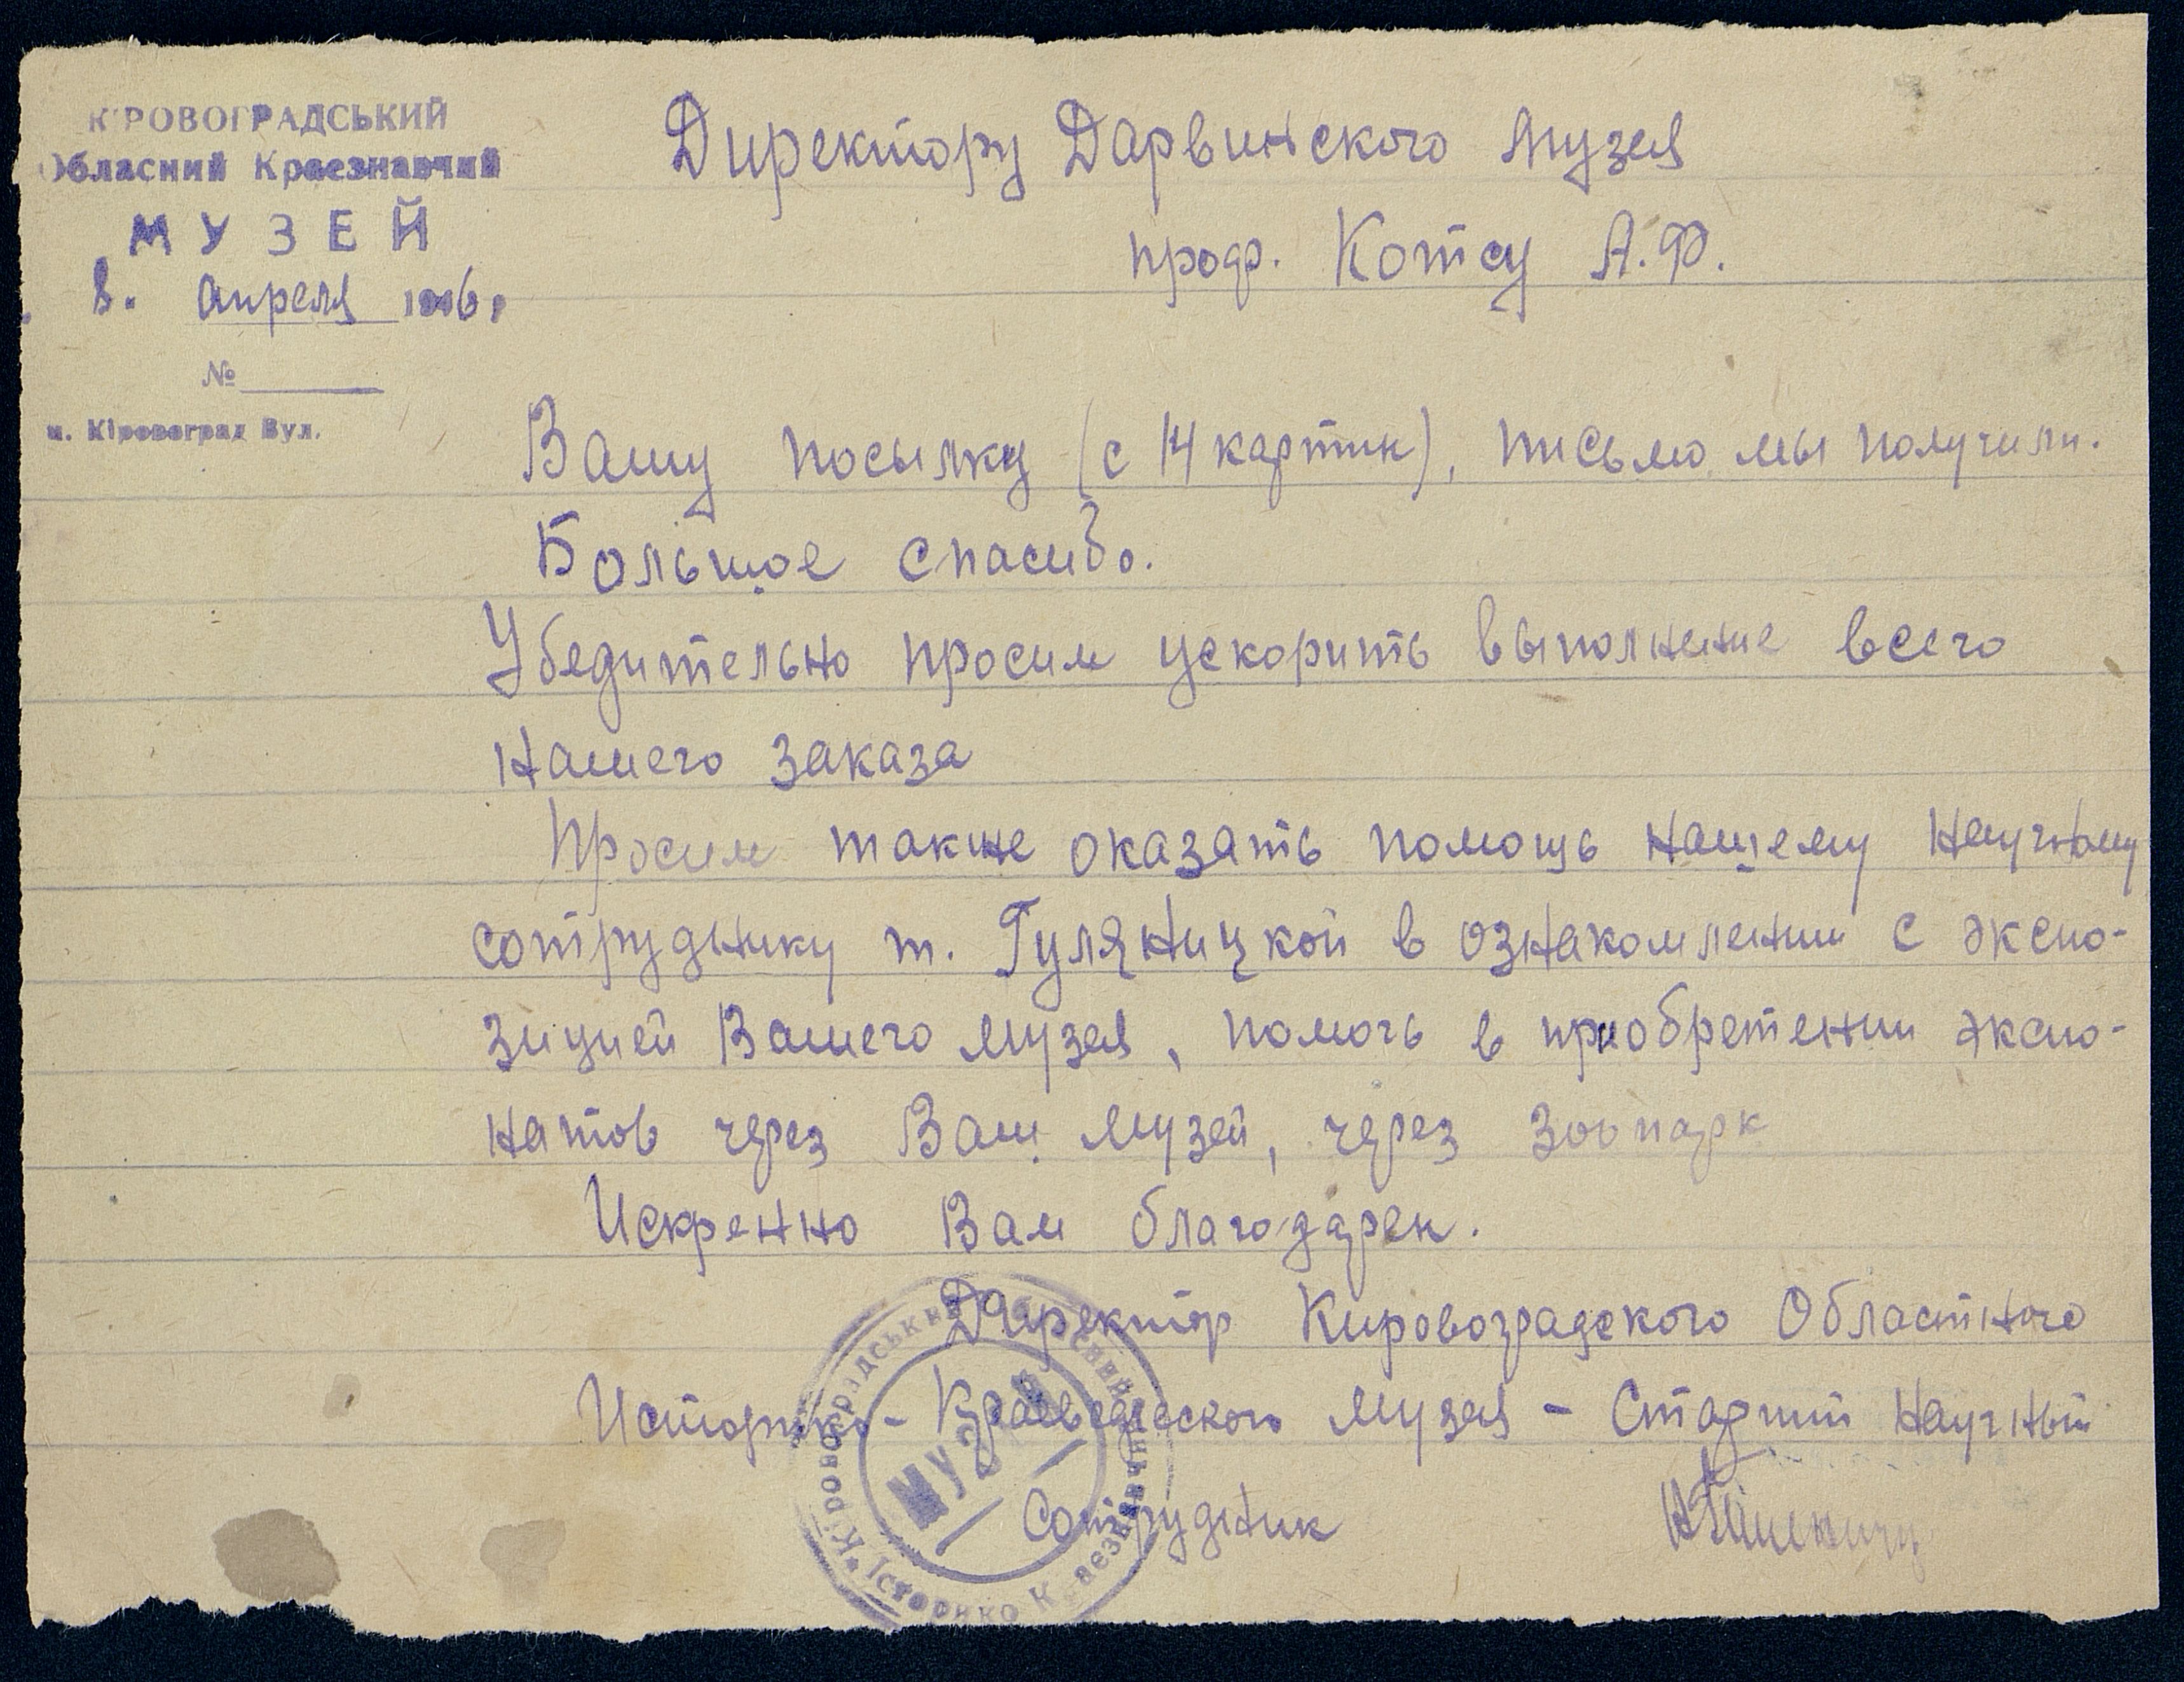 КІРОВОГРАДСЬКИЙ
Обласний Краєзнавчий
МУЗЕЙ
8. апреля 1946,
№
м. Кіровоград Вул.
Директору Дарвинского Музея
проф. Котсу А.Ф.
Вашу посылку (с 14 картин), письмо мы получили.
Большое спасибо.
Убедительно просим ускорить выполнение всего
нашего заказа
Просим также оказать помощь нашему научному
сотруднику т. Гуляницкой в ознакомлении с экспо-
зицией Вашего музея, помочь в приобретении экспо-
натов через Ваш музей, через Зоопарк
Искренно Вам благодарен.
Директор Кировоградского Областного
Историко-Краеведческого музея - Старший научный
Сотрудник
Кіровоградський Обласний Історико Краєзнавчий
Музей